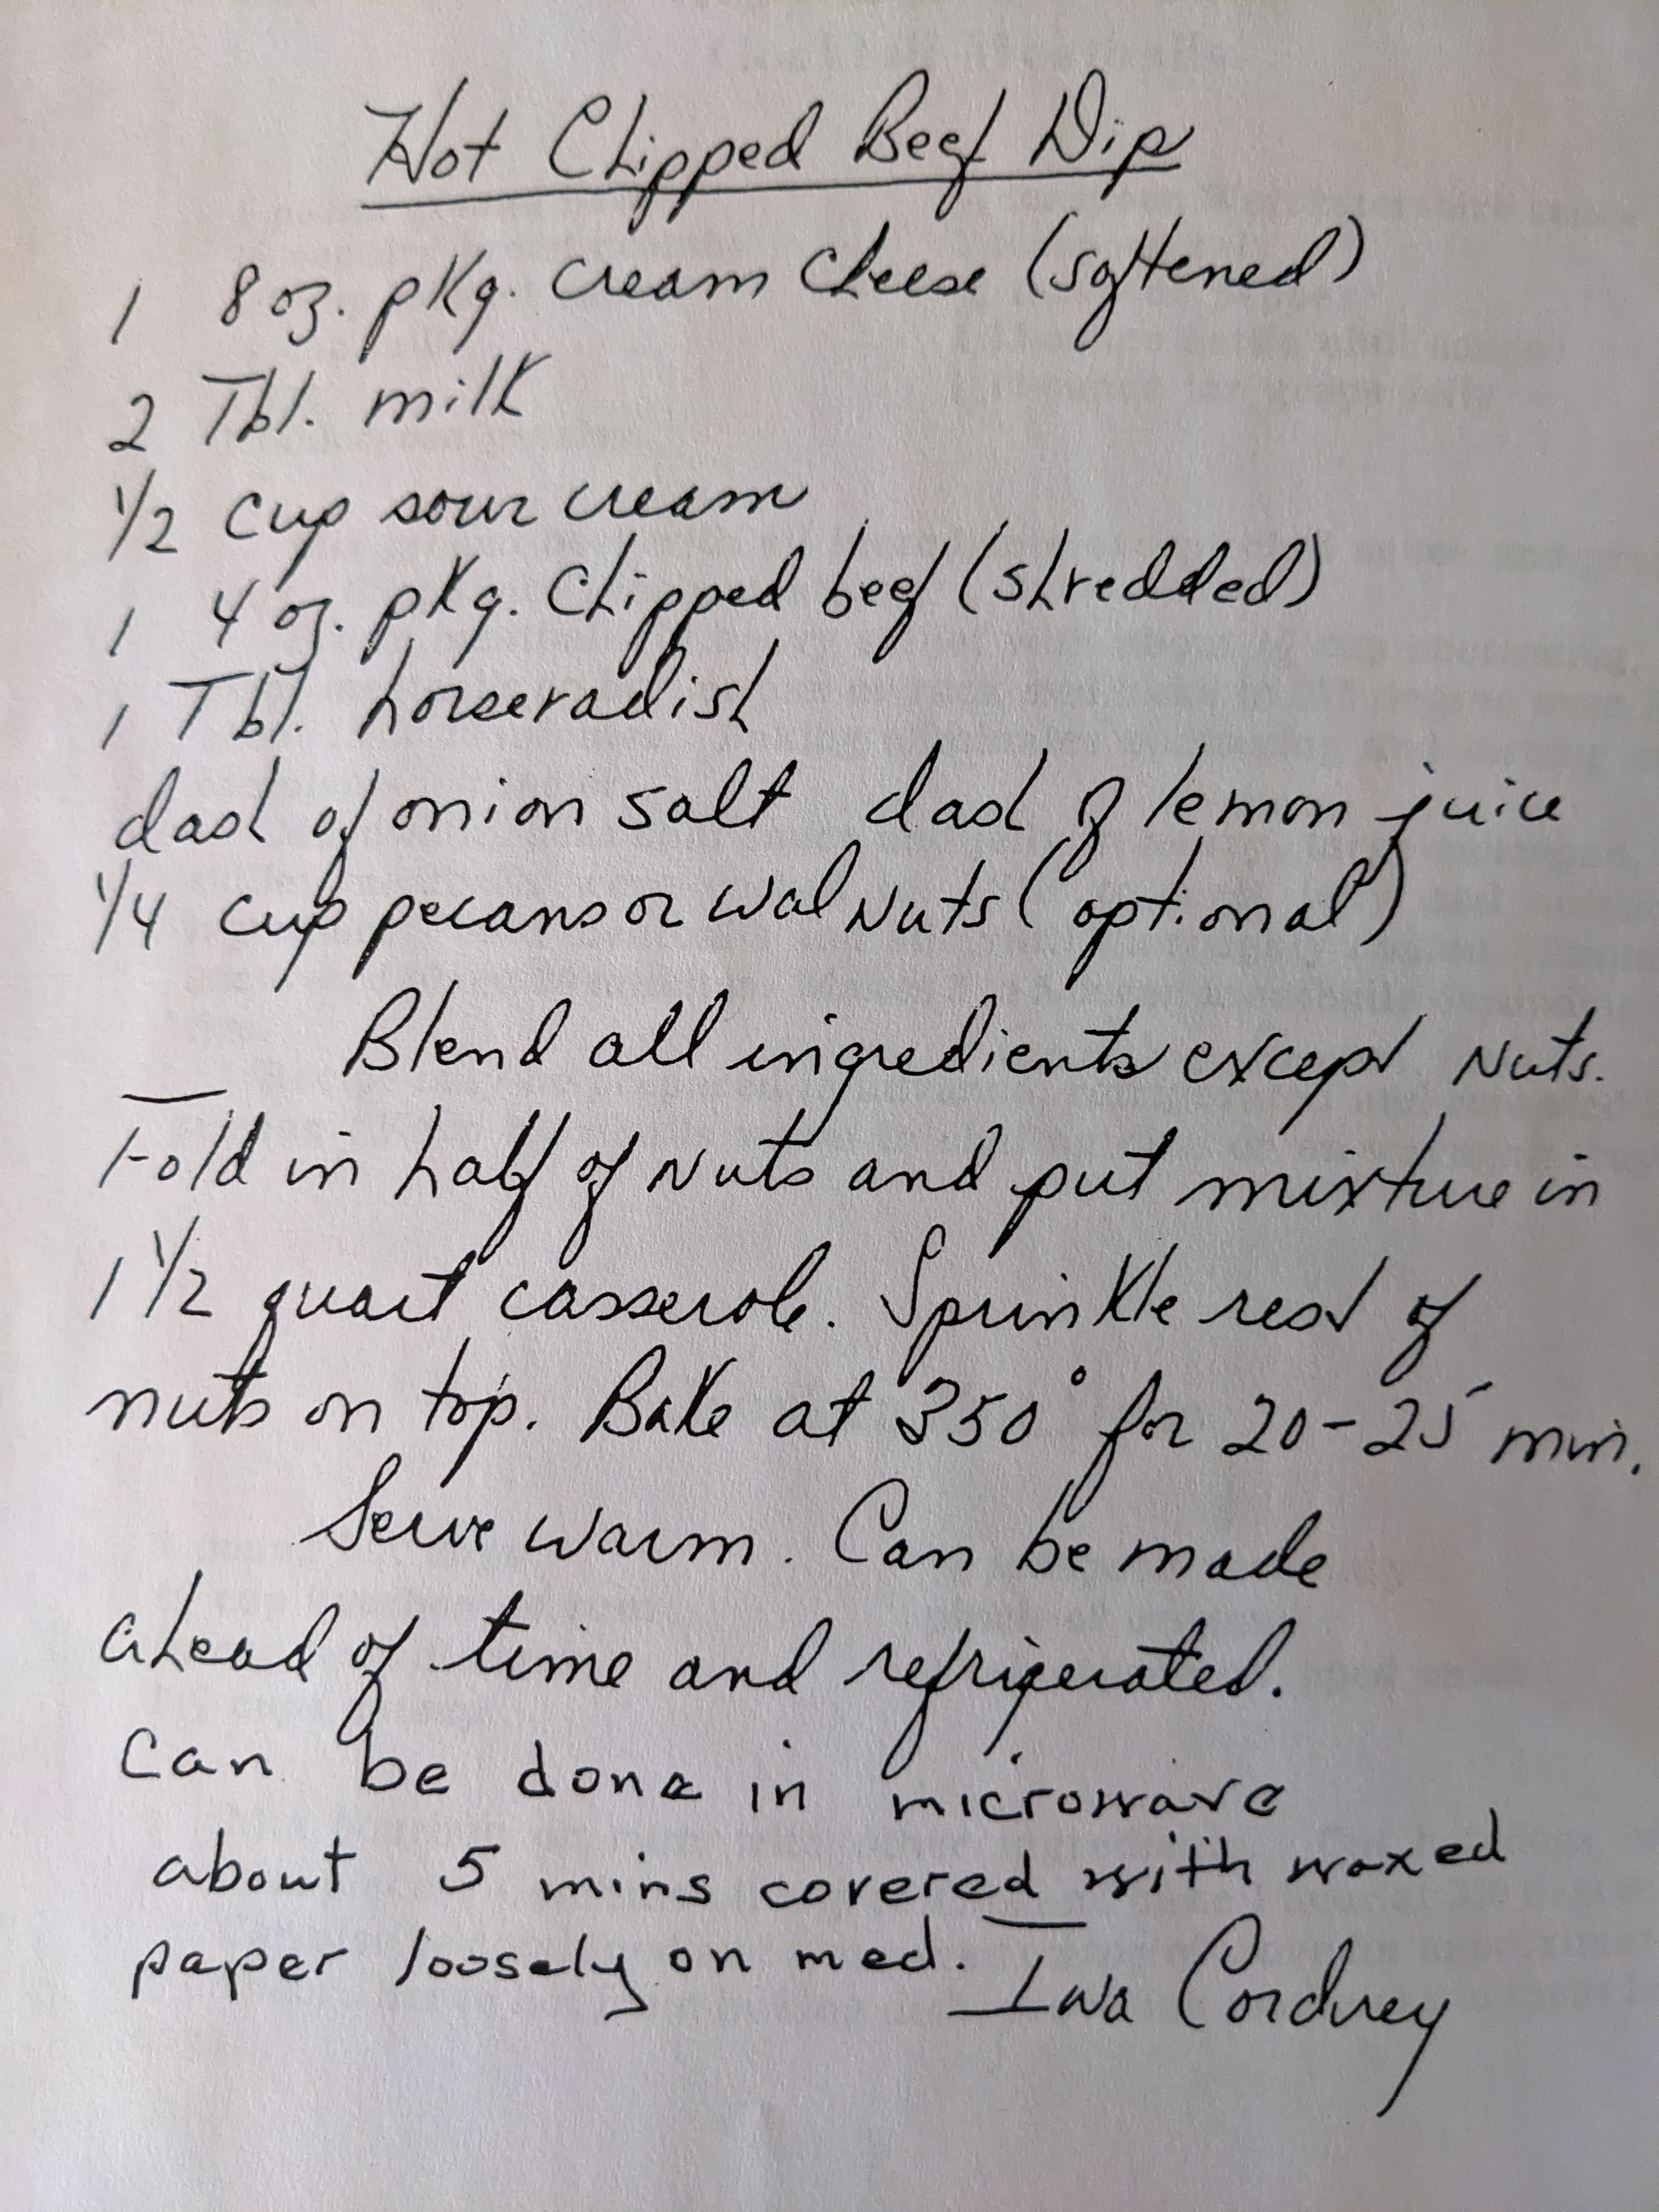 Hot Chipped Beef Dip
1 8 oz. pkg. cream cheese (softened)
2 Tbl. milk
1/2 cup sour cream
1 4 oz. pkg. chipped beef (shredded)
1 Tbl. horseradish
dash of onion salt dash of lemon juice
1/4 cup pecans or walnuts (optional)
Blend all ingredients except nuts.
Fold in half of nuts and put mixture in
1 1/2 quart casserole. Sprinkle rest of
nuts on top. Bake at 350° for 20-25 min.
Serve warm. Can be made
ahead of time and refrigerated.
Can be done in microwave
about 5 mins covered with waxed
paper loosely on med. Iva